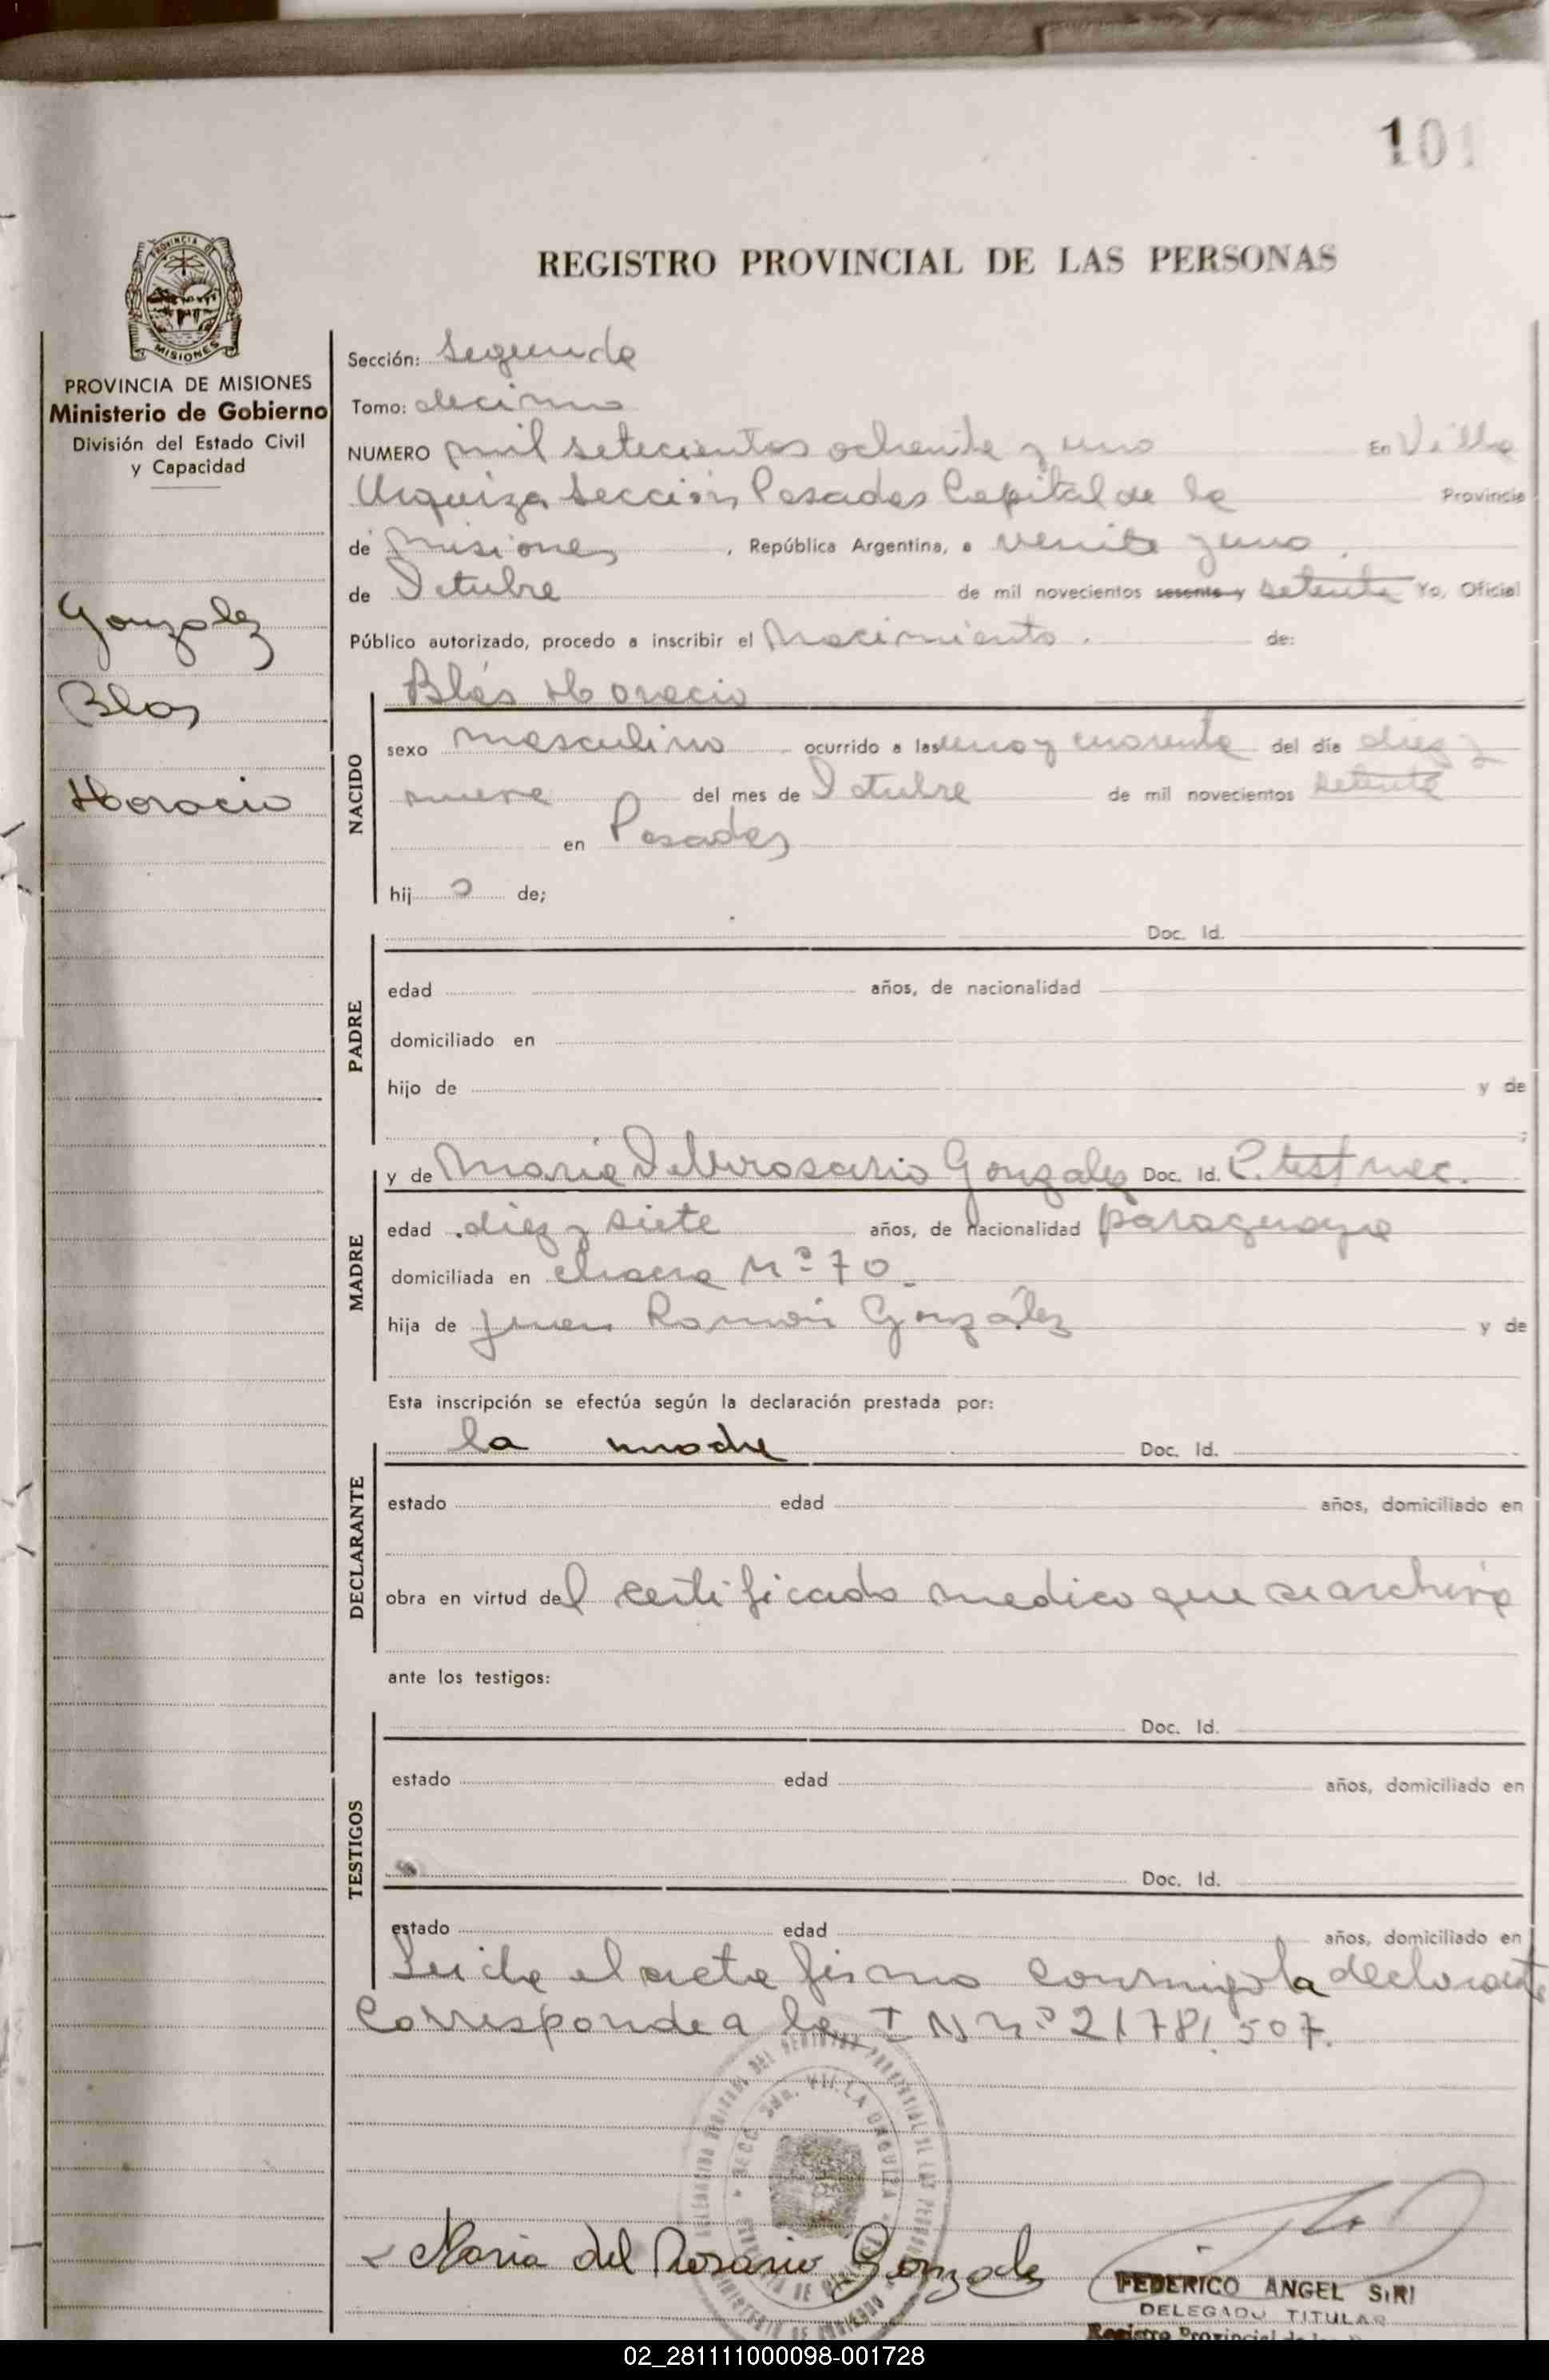 101
REGISTRO PROVINCIAL DE LAS PERSONAS
PROVINCIA DE
MISIONES
PROVINCIA DE MISIONES
Ministerio de Gobierno
División del Estado Civil
y Capacidad
Gonzalez
Blas
Horacio
Sección: Segunda
Tomo: decimo
NUMERO mil setecientos ochenta y uno En Villa
Urquiza Sección Posadas Capital de la Provincia
de Misiones , República Argentina, a veinte y uno
de Octubre de mil novecientos sesenta y setenta Yo, Oficial
Público autorizado, procedo a inscribir el Nacimiento de:
NACIDO
Blás Horacio
sexo masculino ocurrido a las una y cuarenta del día diez y
nueve del mes de Octubre de mil novecientos setenta
en Posadas
hij o de;
PADRE
Doc. Id.
edad años, de nacionalidad
domiciliado en
hijo de y de
;
MADRE
y de Maria Del Rosario Gonzalez Doc. Id. C. test nac.
edad diez y siete años, de nacionalidad paraguaya
domiciliada en chacra Nº 70
hija de Juan Ramón González y de
Esta inscripción se efectúa según la declaración prestada por:
DECLARANTE
la madre Doc. Id.
estado edad años, domiciliado en
obra en virtud del certificado medico que se archiva
ante los testigos:
TESTIGOS
Doc. Id.
estado edad años, domiciliado en
Doc. Id.
estado edad años, domiciliado en
Leida el acta firma conmigo la declarante
Corresponde a la I N nº 21781.507.
VILLA URQUIZA
Maria del Rosario Gonzalez
FEDERICO ANGEL SIRI
DELEGADO TITULAR
Registro Provincial de las
02_281111000098-001728